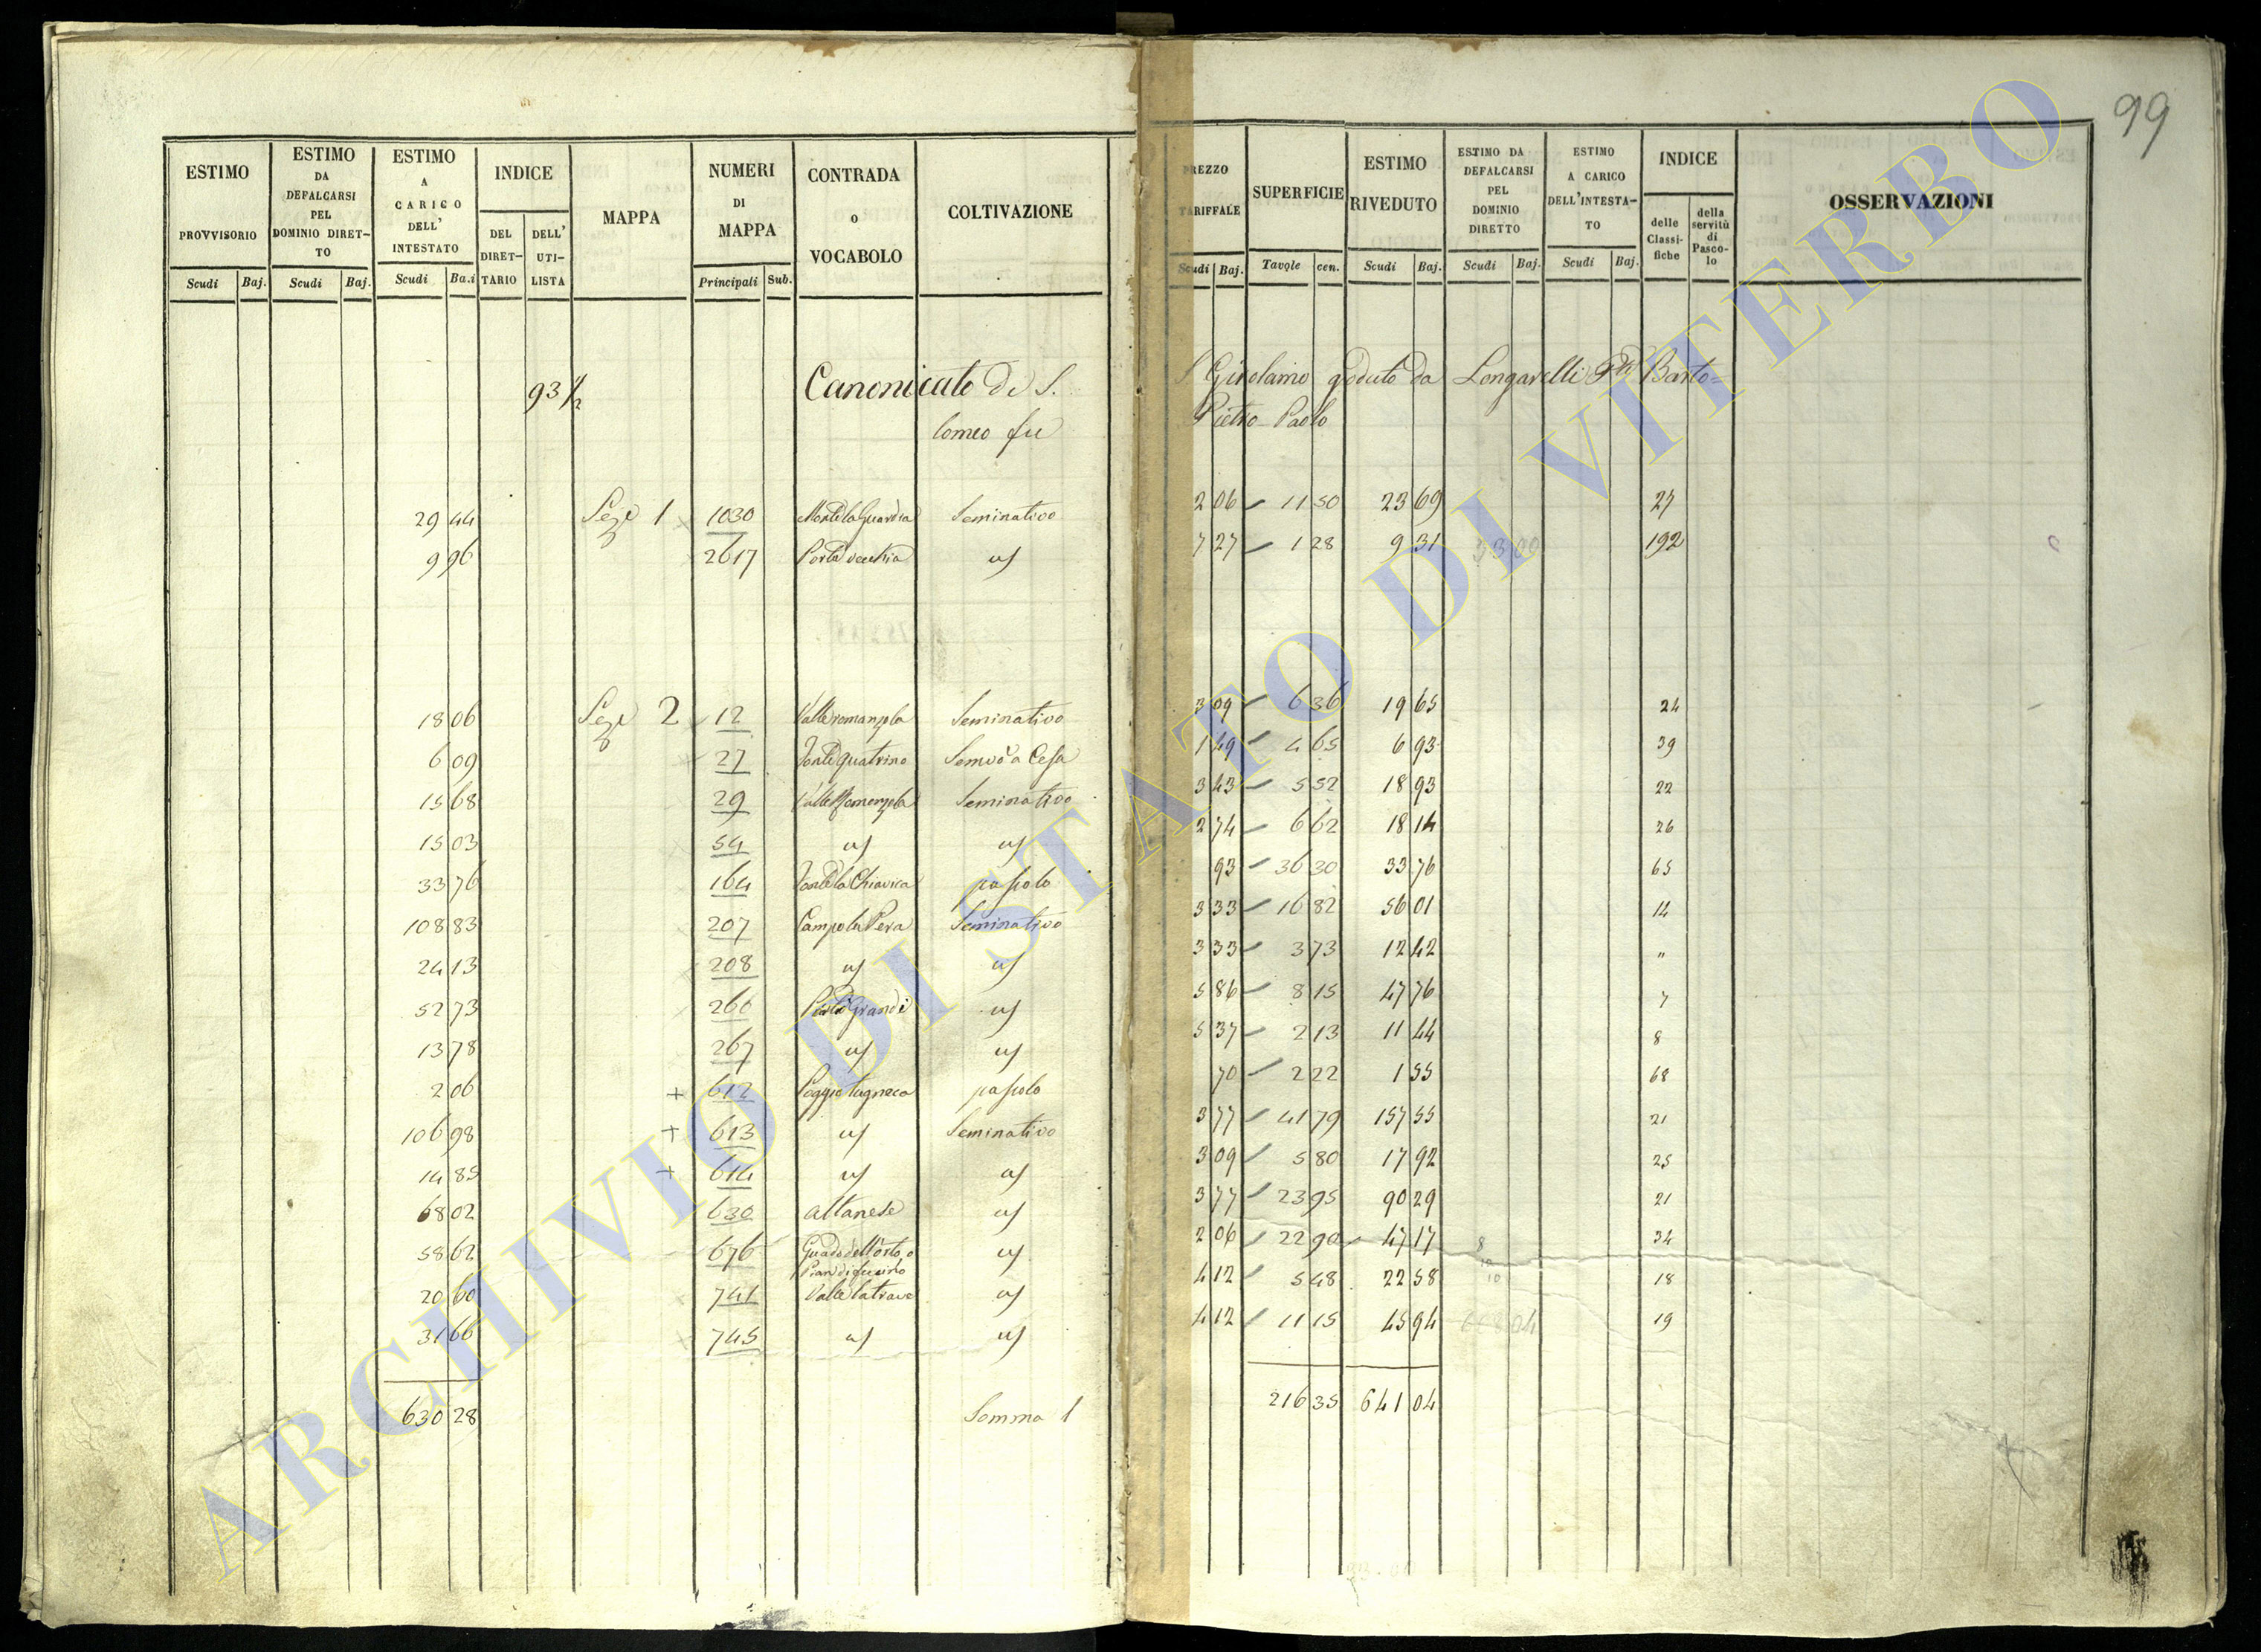 99
ESTIMO PROVVISORIO Scudi Baj.
ESTIMO DA DEFALCARSI PEL DOMINIO DIRET-TO Scudi Baj.
ESTIMO A CARICO DELL' INTESTATO Scudi Ba.i
INDICE DEL DIRET-TARIO DELL' UTI-LISTA
MAPPA
NUMERI DI MAPPA Principali Sub.
CONTRADA o VOCABOLO
COLTIVAZIONE
PREZZO TARIFFALE Scudi Baj.
SUPERFICIE Tavole cen.
ESTIMO RIVEDUTO Scudi Baj.
ESTIMO DA DEFALCARSI PEL DOMINIO DIRETTO Scudi Baj.
ESTIMO A CARICO DELL'INTESTA-TO Scudi Baj.
INDICE delle Classi-fiche della servitù di Pasco-lo
OSSERVAZIONI
93 1/2 Canonicato di S. Girolamo goduto da Longarelli Barto=
lomeo fu Pietro Paolo
29 44 Seze 1 1030 Monte la Guardia Seminativo 2 06 11 50 23 69 27
9 96 2617 Porta vecchia 7 27 1 28 9 31 33 00 192
18 06 Seze 2 12 Valle romanzola Seminativo 3 09 6 36 19 65 24
6 09 27 Fonte quatrino Semvo a Cesa 1 49 4 65 6 93 39
15 68 29 Valle Romanzola Seminativo 3 43 5 52 18 93 22
15 03 54 2 74 6 62 18 14 26
33 76 164 Fonte la Chiavica pascolo 93 36 30 33 76 65
108 83 207 Campo la Pera Seminativo 3 33 16 82 56 01 14
24 13 208 3 33 3 73 12 42 "
52 73 260 Prati Grandi 5 86 8 15 47 76 7
13 78 267 5 37 2 13 11 44 8
2 06 + 612 Poggio tugneca pascolo 70 2 22 1 55 68
106 98 + 613 Seminativo 3 77 41 79 157 55 21
14 85 + 614 3 09 5 80 17 92 25
68 02 630 altanese 3 77 23 95 90 29 21
58 62 676 Guado dell'orto, o 2 06 22 90 47 17 34
20 60 741 Valle la trave 4 12 5 48 22 58 18
31 66 745 4 12 11 15 45 94 19
630 28 Somma 1 216 35 641 04
ARCHIVIO DI STATO DI VITERBO